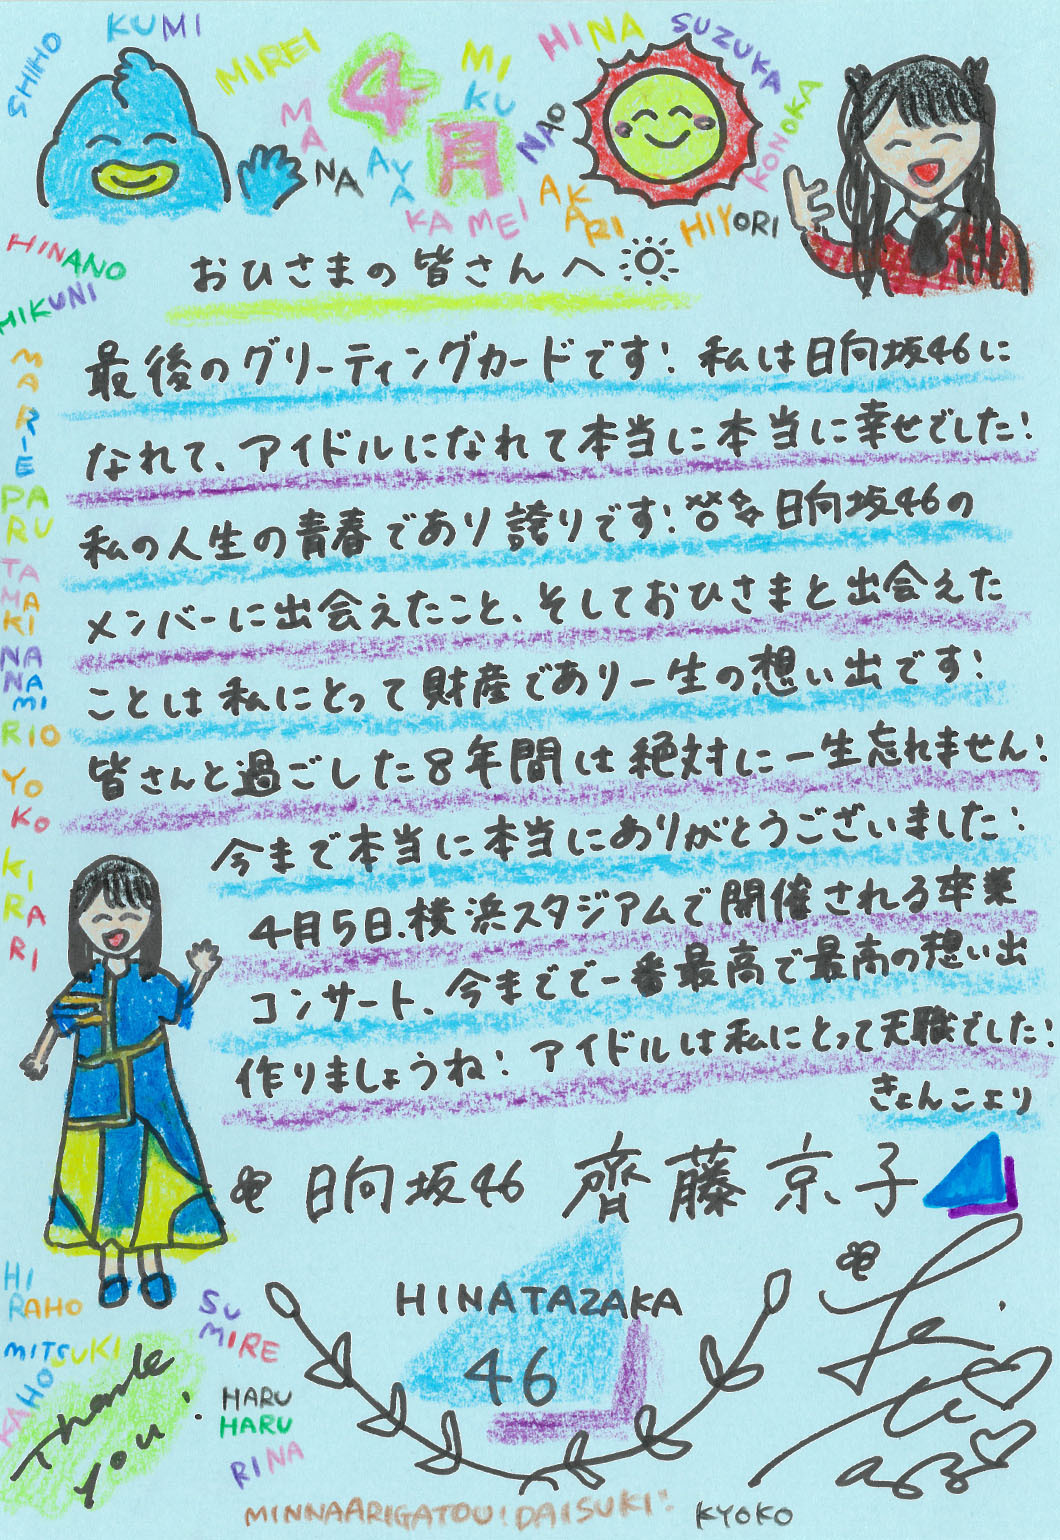 SHIHO
KUMI
MIREI
MANA
4月
AYA
KAMEI
MIKU
NAO
HINA
AKARI
SUZUKA
KONOKA
HIYORI
HINANO
MIKUNI
おひさまの皆さんへ
最後のグリーティングカードです! 私は日向坂46に
なれて、アイドルになれて本当に本当に幸せでした!
私の人生の青春であり誇りです! 日向坂46の
メンバーに出会えたこと、そしておひさまと出会えた
ことは私にとって財産であり一生の想い出です!
皆さんと過ごした8年間は絶対に一生忘れません!
今まで本当に本当にありがとうございました!
4月5日、横浜スタジアムで開催される卒業
コンサート、今までで一番最高で最高の想い出
作りましょうね! アイドルは私にとって天職でした!
きょんこより
日向坂46 齊藤京子
MARIE
PARU
TAMAKI
NANAMI
RIO
YOKO
KIRARI
HIRAHO
MITSUKI
KAHO
SUMIRE
HARUHARU
RINA
Thank
you!
HINATAZAKA
46
MINNAARIGATOU!DAISUKI!
KYOKO